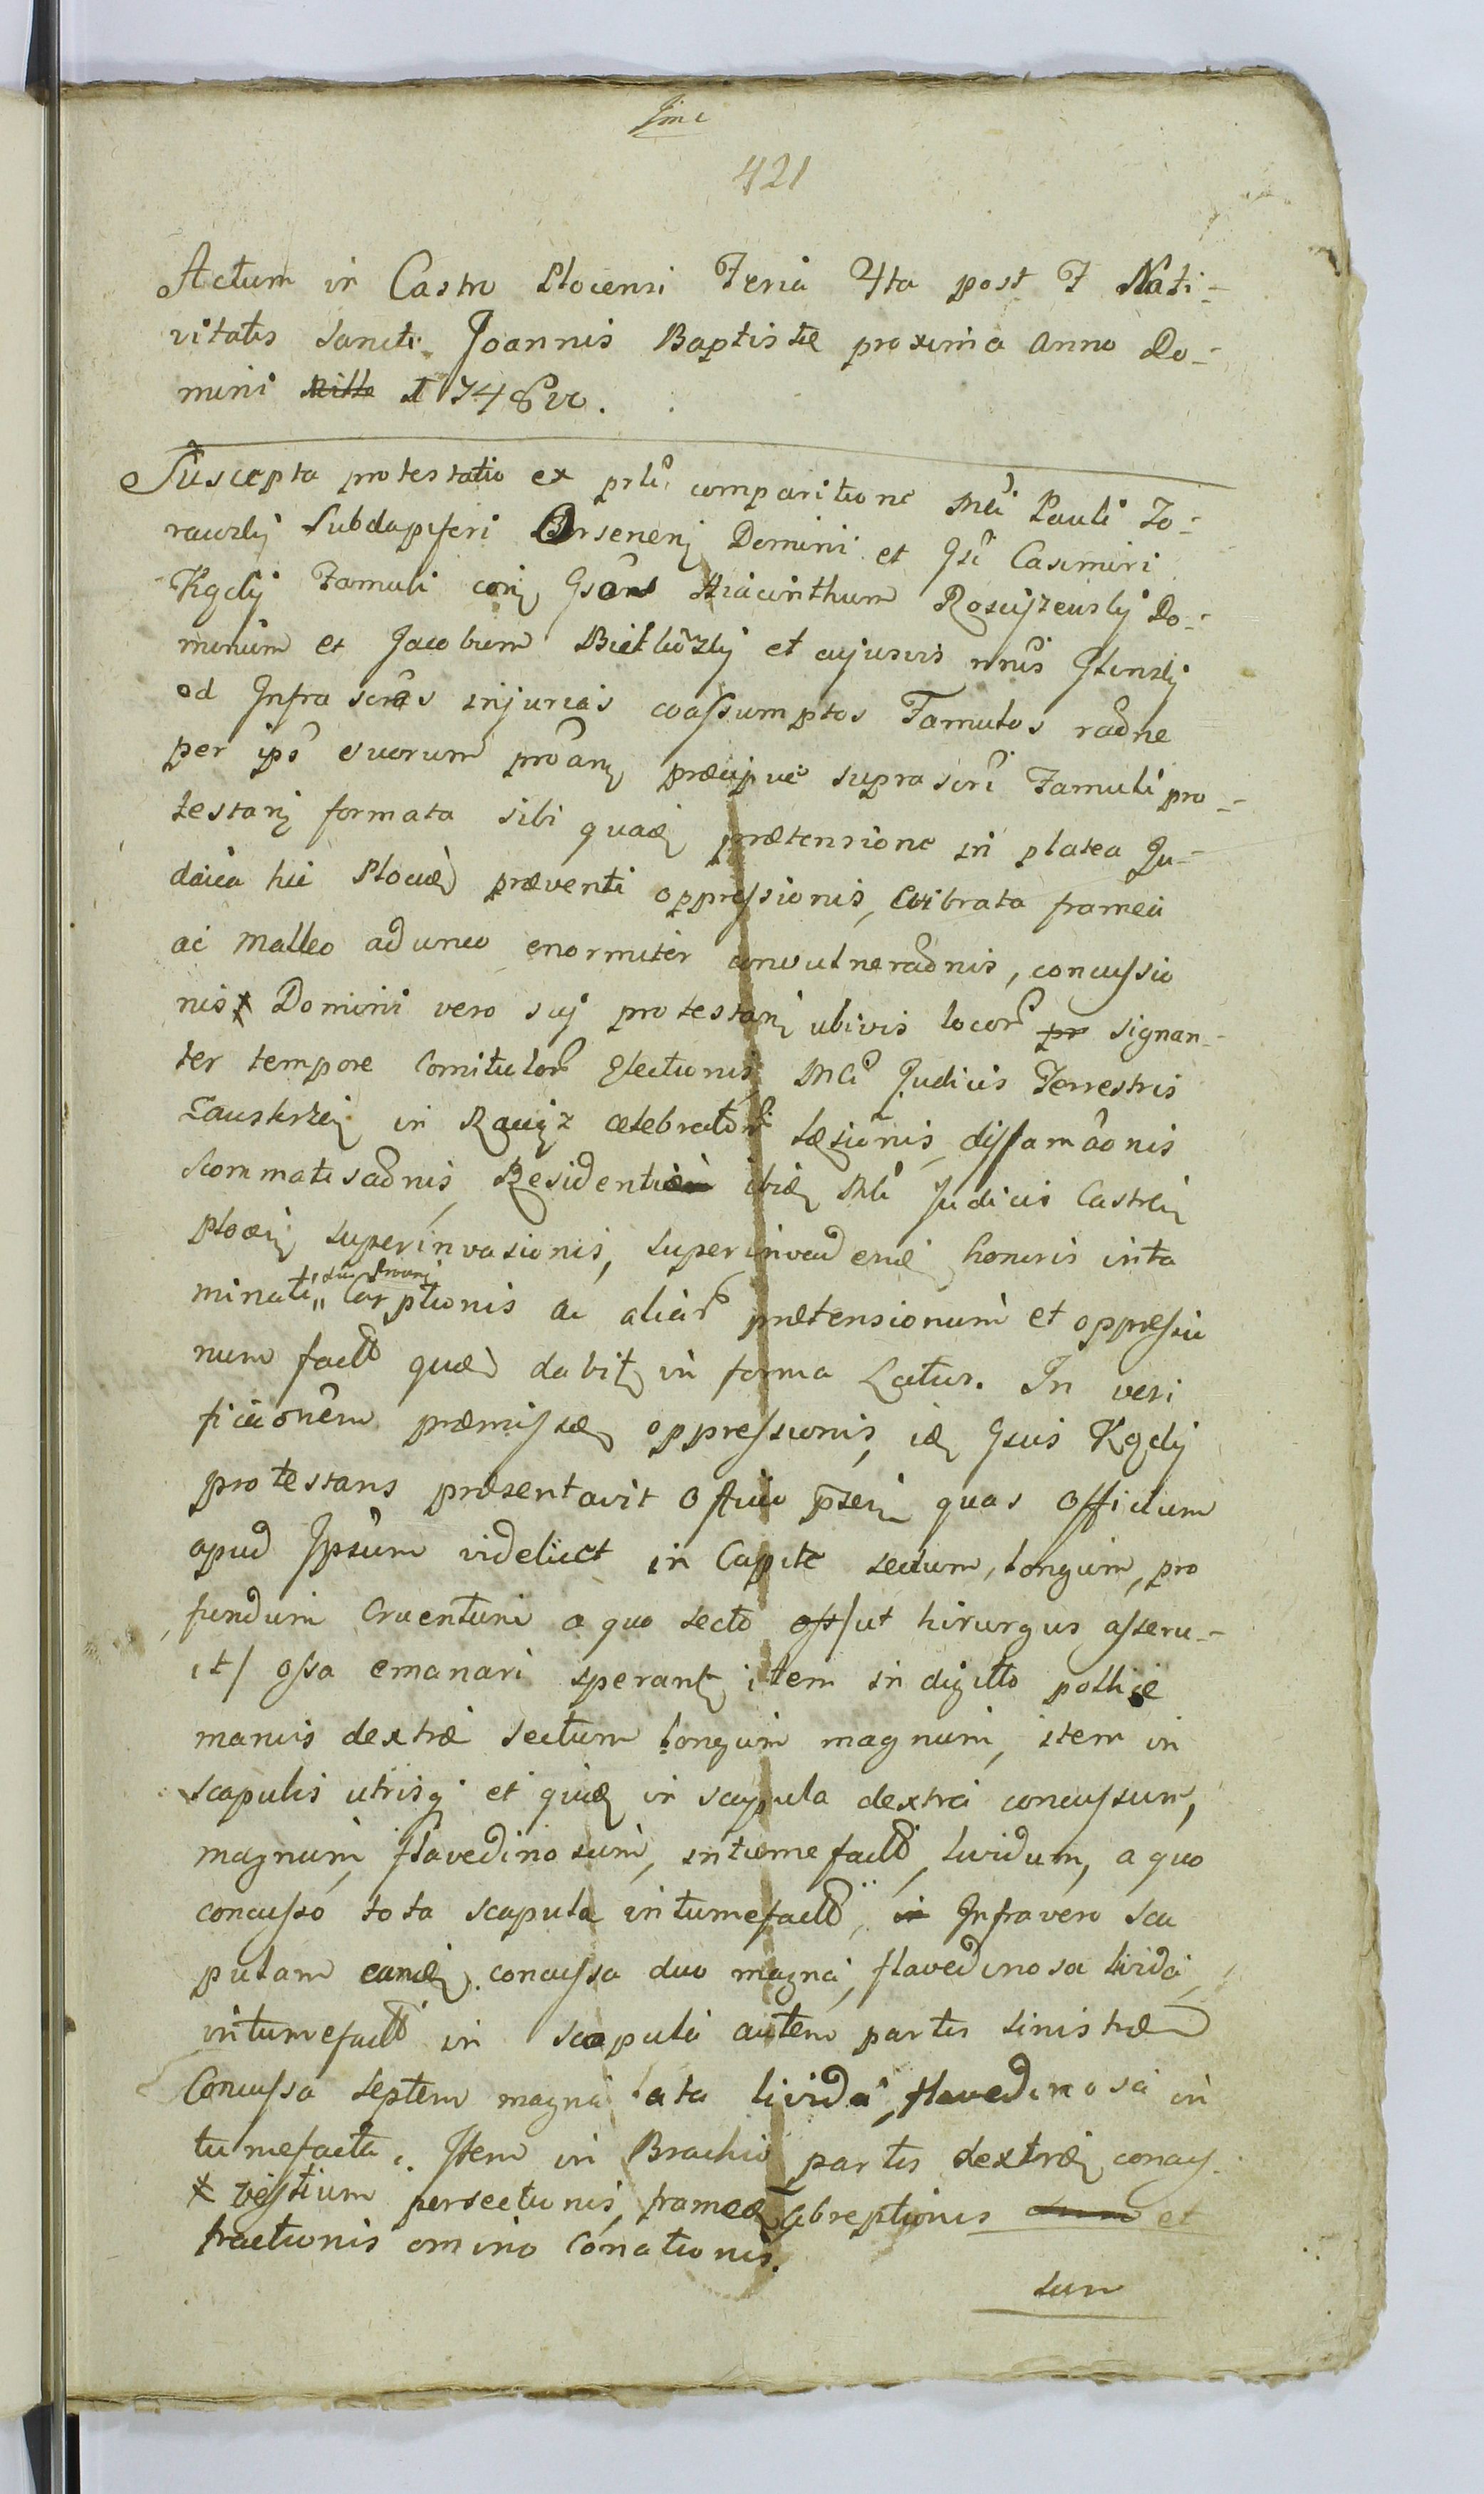 421
Actum in Castro Plocensi Feria 4ta post F Nati-
vitatis Sancti Joannis Baptistæ proxima Anno Do-
mini Mille 1748vo.
Suscepta protestatio ex prli comparitione Mci Pauli Zo-
rawsky Subdapiferi Domini et Gsi Casimiri
Kgdy Famuli conq Gsos Hiacinthum Rosciszewsky Do-
minum et Jacobum et cujusvis nnis
ad Infra scras injurias coassumptos Famulos raône
per ips suorum præcipue suprascri Famuli pro-
testanq formata sibi quadq prætensione in platea Ju-
daica hic Plocæ præventi oppressionis, Cvibrata framea
ac malleo adunco enormiter convulneraônis, concussio
nis * Domini vero sui protestanq ubivis locor pr signan-
ter tempore Comitiolor Electionis Mci Judicis Terrestris
in Raciąz celebrator læsionis diffamaônis
scommatisaônis, Residentiæ ibidq Mci Judicis Castrenq
plocenq superinvasionis, superinvadendi honoris inta
minati" Carptionis ac aliar prætensionum et oppressio
num factt quæ dabitq in forma Latius. In veri
ficaônem præmissæ oppressionis, idq Gsus Kgdy
protestans præsentavit Officio pserq quas Officium
apud Ipsum videlicet in Capite sectum, longum, pro
fundum Cruentum a quo secto oss /ut hirurgus asseru-
it/ ossa emanari sperantq item in digitto pollice
manus dextræ sectum longum magnum, item in
scapulis utrisq et quidq in scapula dextra concussum,
magnum, flavedinosum, intumefactt, lividum, a quo
concusso tota scapula intumefactt, in Infra vero sca
pulam eandq concussa duo magna, flavedinosa livida,
intumefactt in scapula autem partis sinistræ
Concussa septem magna lata livida, flavedinosa in
tumefacta. Item in Brachio partis dextræ concus-
* vestium persectionis, frameæ abreptionis sum et
fractionis omino Conationis.
sum